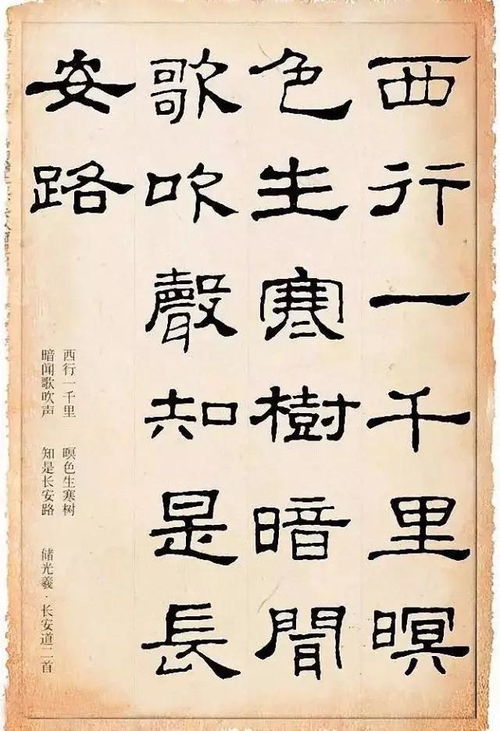 西行一千里暝
色生寒樹暗聞
歌吹聲知是長
安路
西行一千里 暝色生寒树 储光羲·长安道二首
暗闻歌吹声 知是长安路